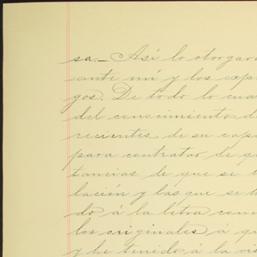 sa.— Así lo otorgaro
ante mí y los exp
gos. De todo lo cua
del conocimiento, d
recientes de su capa
para contratar de q
taneras de que se t
lación y las que se t
do á la letra con
los originales á q
y he tenido á la vis